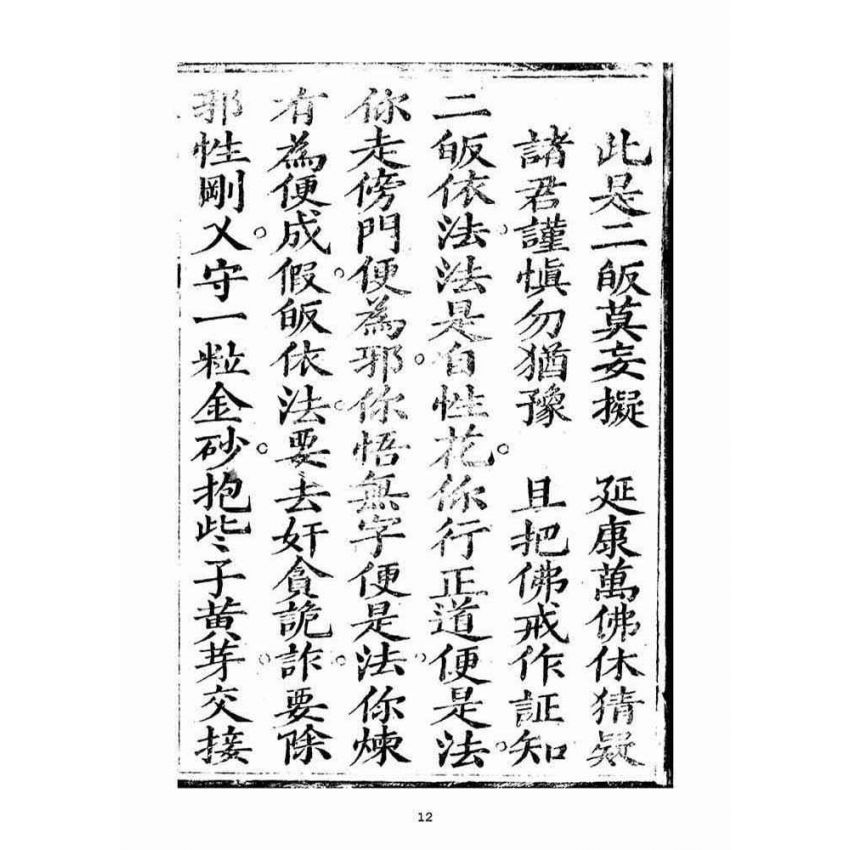 此是二皈莫妄擬　延康萬佛休猜疑
諸君謹慎勿猶豫　且把佛戒作証知
二皈依法。法是自性花。你行正道便是法。
你走傍門便為邪。你悟無字便是法。你煉
有為便成假。皈依法。要去奸貪詭詐。要除
邪性剛乂。守一粒金砂。抱些子黃芽。交接
12